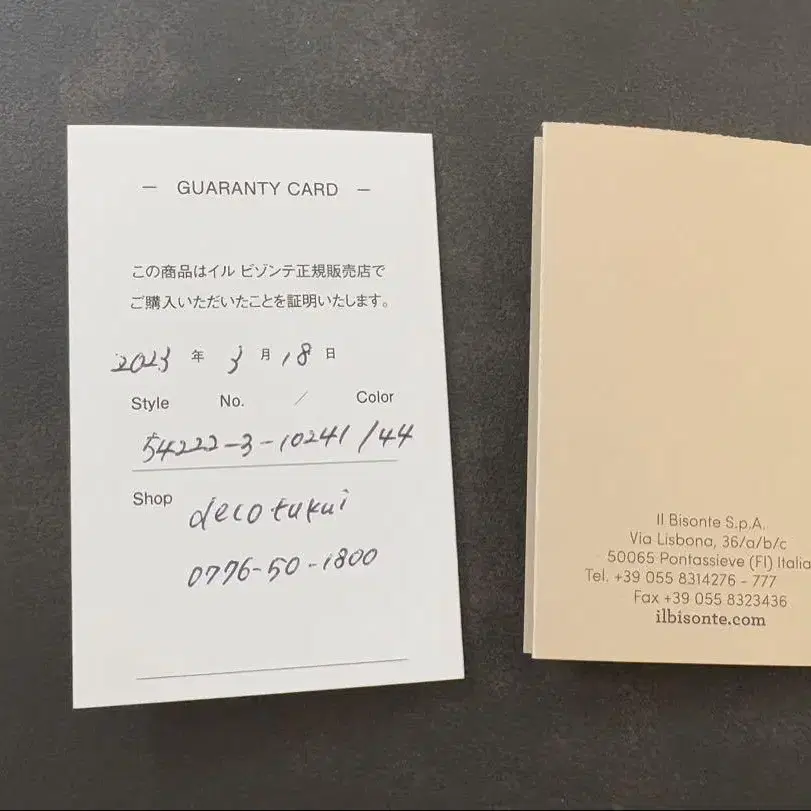 — GUARANTY CARD —
この商品はイル ビゾンテ正規販売店で
ご購入いただいたことを証明いたします。
2023 年 3 月 18 日
Style No. / Color
54222-3-10241 /44
Shop deco tukui
0776-50-1800
Il Bisonte S.p.A.
Via Lisbona, 36/a/b/c
50065 Pontassieve (FI) Italia
Tel. +39 055 8314276 - 777
Fax +39 055 8323436
ilbisonte.com